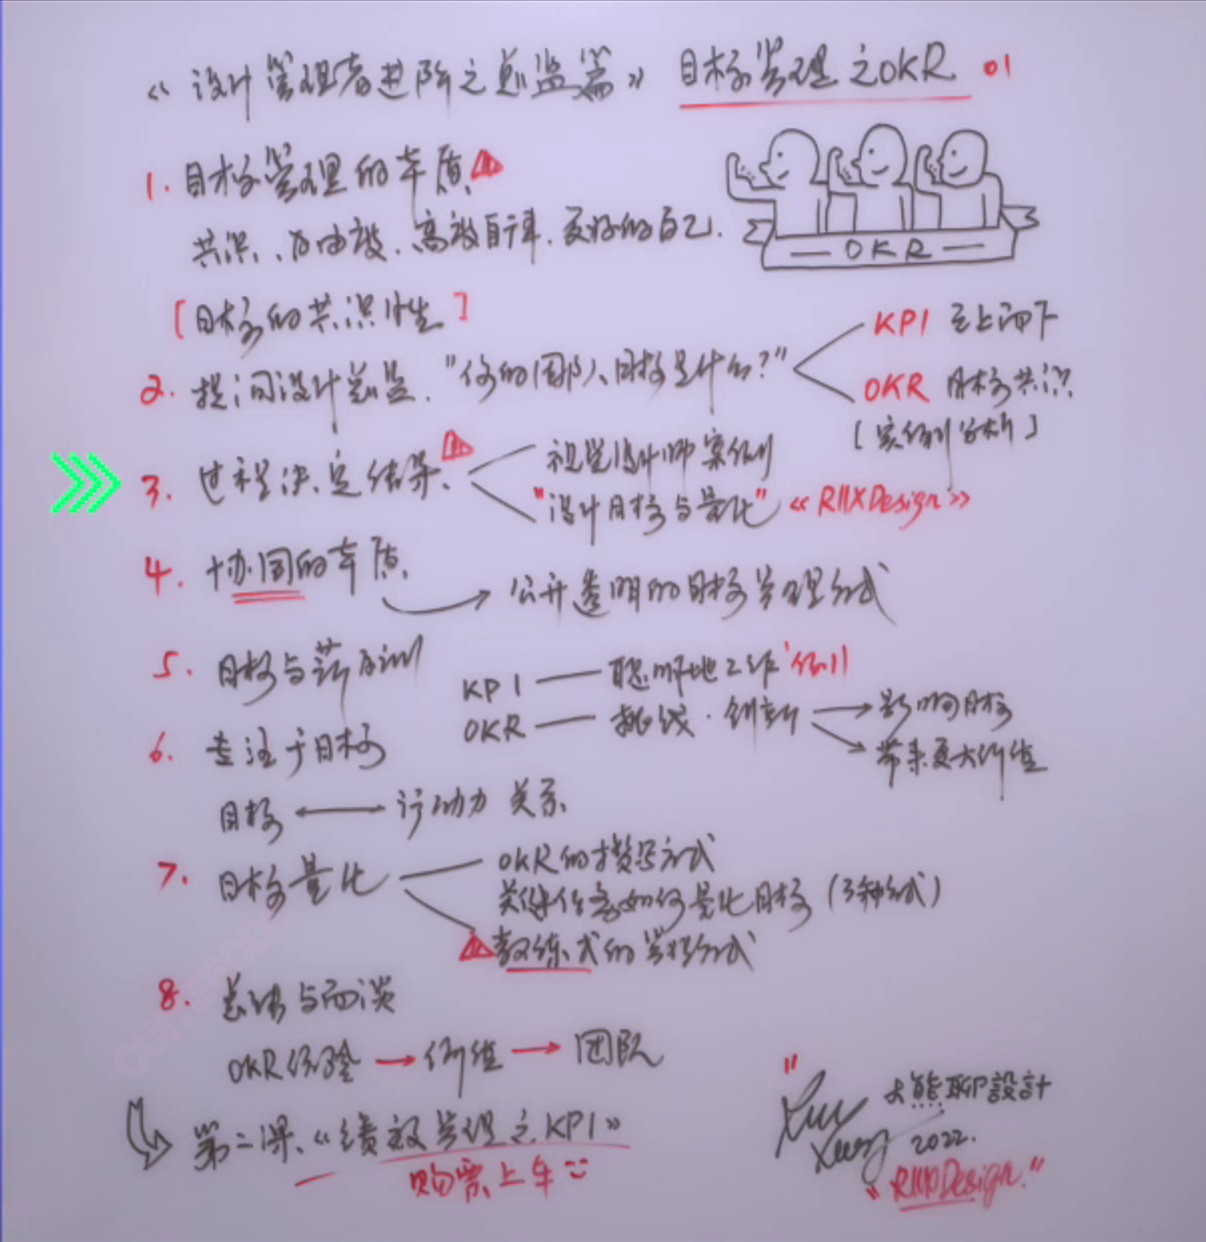 《设计管理者进阶之总监篇》 目标管理之OKR 01
1. 目标管理的本质
共识、方向感、高效自律、更好的自己.
OKR
[目标的共识性]
2. 提问设计总监. "你的团队、目标是什么?"
KPI 至上而下
OKR 目标共识
[案例分析]
3. 过程决定结果.
视觉设计师案例
"设计目标与量化" 《RIIXDesign》
4. 协同的本质.
公开透明的目标管理方式
5. 目标与薪酬
KPI — 聪明地工作 '例'
OKR — 挑战·创新 → 影响目标
→ 带来更大价值
6. 专注于目标
目标 ⟷ 行动力 关系.
7. 目标量化
OKR的撰写方式
关键任务如何量化目标 (3种方式)
教练式的管理方式
8. 总结与面谈
OKR经验 → 价值 → 团队
第二课、《绩效管理之KPI》
购票上车
大熊聊設計
2022.
"RIIXDesign."